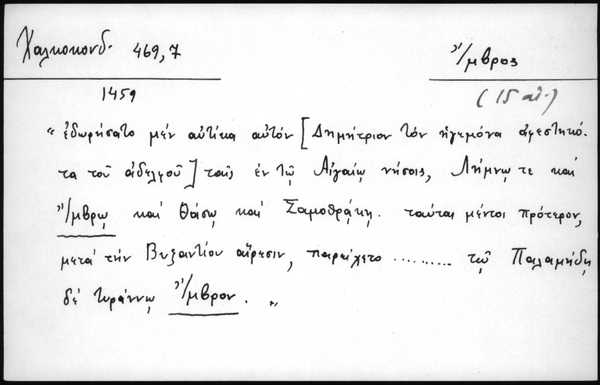 Χαλκοκονδ. 469,7 Ἴμβρος
1459 (15 αἰ.)
"ἐδωρήσατο μέν αὐτίκα αὐτόν [Δημήτριον τόν ἡγεμόνα ἀφεστηκό-
τα τοῦ ἀδελφοῦ] ταῖς ἐν τῷ Αἰγαίῳ νήσοις, Λήμνῳ τε καί
Ἴμβρῳ καί Θάσῳ καί Σαμοθρᾴκῃ. ταύτας μέντοι πρότερον,
μετά τήν Βυζαντίου αἵρεσιν, παρείχετο .......... τῷ Παλαμήδῃ
δέ τυράννῳ Ἴμβρον. "